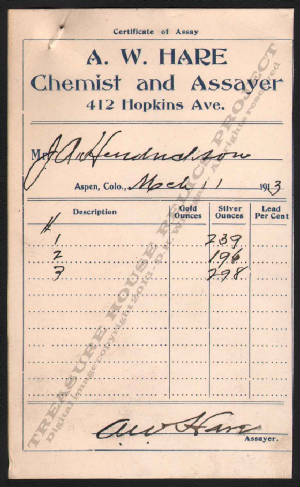 Certificate of Assay
A. W. HARE
Chemist and Assayer
412 Hopkins Ave.
Mr. J. A. Hendrickson
Aspen, Colo., Mch 1 1913
Description Gold Ounces Silver Ounces Lead Per Cent
#
1 239
2 196
3 298
AW Hare
Assayer.
TREASURE HOUSE RELICS PROJECT